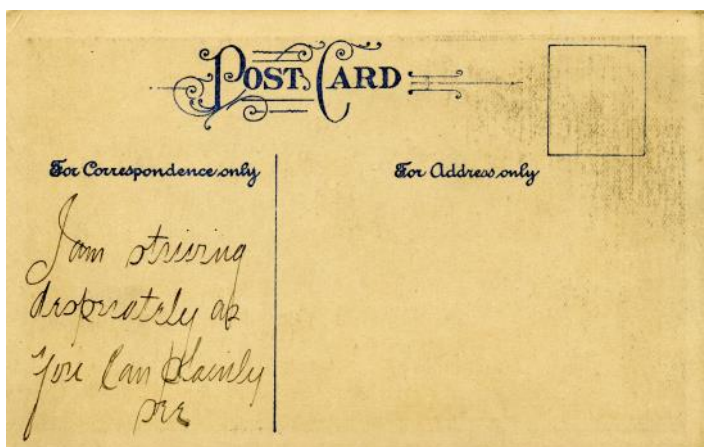 POST CARD
For Correspondence only
For Address only
I am striving
desperately as
you can plainly
see